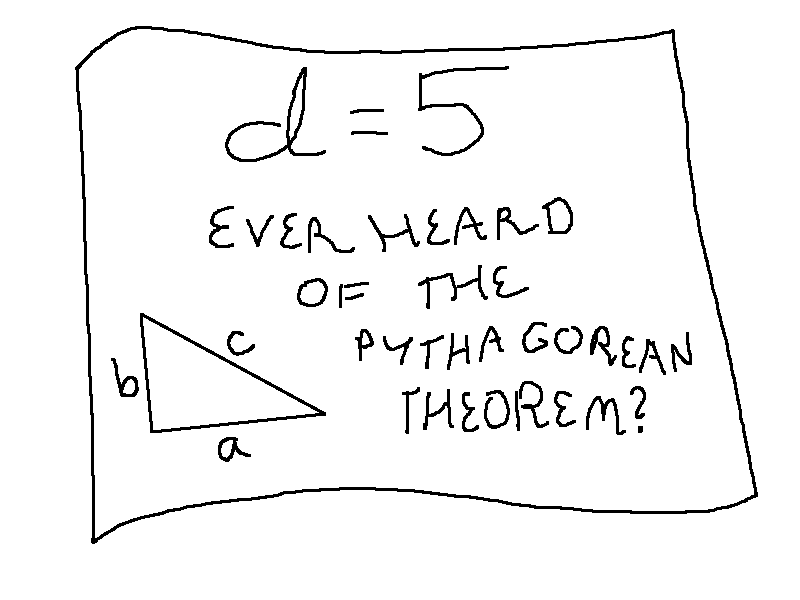 d = 5
EVER HEARD
OF THE
PYTHAGOREAN
THEOREM?
b
c
a